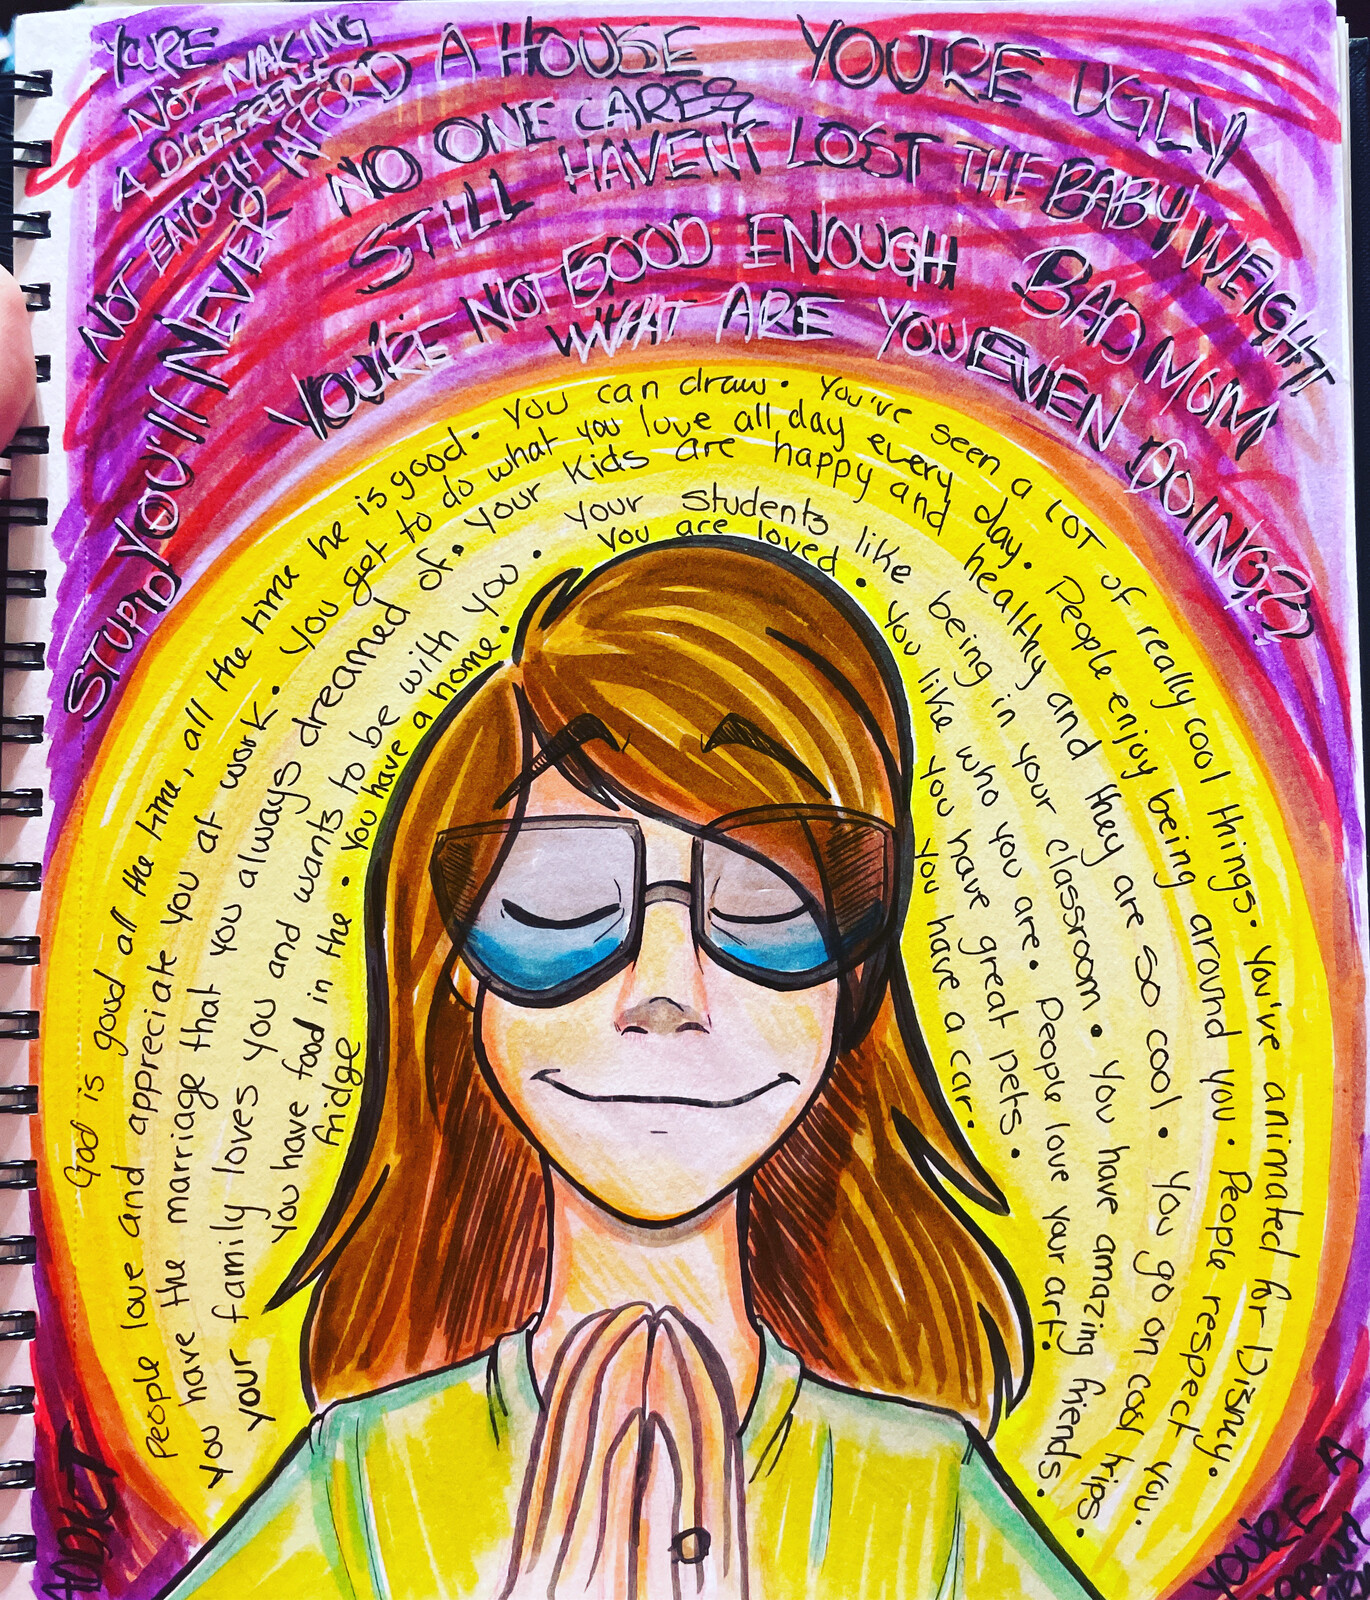 YOURE
NOT MAKING
A DIFFERENCE
NOT ENOUGH
STUPID
YOU'll NEVER AFFORD A HOUSE
YOU'RE UGLY
NO ONE CARES
STILL HAVEN'T LOST THE BABY WEIGHT
YOU'RE NOT GOOD ENOUGH
BAD MOM
WHAT ARE YOU EVEN DOING??
God is good all the time, all the time he is good. You can draw. You've seen a LOT of really cool things. You've animated for Disny.
People love and appreciate you at work. You get to do what you love all day every day. People enjoy being around you. People respect you.
You have the marriage that you always dreamed of. Your kids are happy and healthy and they are so cool. You go on cool trips.
your family loves you and wants to be with you. Your students like being in your classroom. You have amazing friends.
You have food in the fridge. You have a home. You are loved. You like who you are. People love your art.
You have great pets.
You have a car.
ADDICT
YOU'RE A